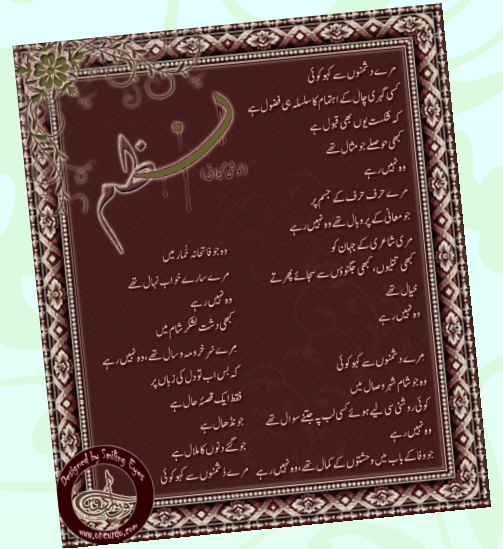 نظم
(نوشی گیلانی)
مرے دشمنوں سے کہو کوئی
کسی گہری چال کے اہتمام کا سلسلہ ہی فضول ہے
کہ شکست یوں بھی قبول ہے
کبھی حوصلے جو مثال تھے
وہ نہیں رہے
مرے حرف حرف کے جسم پر
جو معانی کے پر و بال تھے وہ نہیں رہے
مری شاعری کے جہان کو
کبھی تتلیوں، کبھی جگنوؤں سے سجائے پھرتے
خیال تھے
وہ نہیں رہے
مرے دشمنوں سے کہو کوئی
وہ جو شام شہر وصال میں
کوئی روشنی سی لیے ہوئے کسی لب پہ جتنے سوال تھے
وہ نہیں رہے
جو وفا کے باب میں وحشتوں کے کمال تھے، وہ نہیں رہے
وہ جو فاتحانہ خُمار میں
مرے سارے خواب نہال تھے
وہ نہیں رہے
کبھی دشت لشکر شام میں
مرے سرخرو مہ و سال تھے، وہ نہیں رہے
کہ بس اب تو دل کی زباں پر
فقط ایک قصۂ حال ہے
جو نڈھال ہے
جو گئے دنوں کا ملال ہے
مرے دشمنوں سے کہو کوئی
Designed by Smiling Eyes
www.oneurdu.com